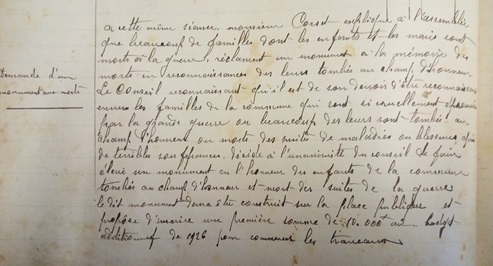 Demande d'un
monument aux morts
a cette même séance, monsieur Corset explique à l'assemblée
que beaucoup de familles dont les enfants et les maris sont
morts à la guerre, réclament un monument à la mémoire des
morts en reconnaissances des leurs tombés au champ d'honneur
Le Conseil reconnaissant qu'il est de son devoir d'être reconnaissant
envers les familles de la commune qui sont si cruellement
par la grande guerre ou beaucoup des leurs sont tombés au
champ d'honneur ou morts des suites de maladies ou blessures
de terribles souffrances, décide à l'unanimité du conseil de faire
élevé un monument en l'honneur des enfants de la commune
tombés au champ d'honneur et mort des suites de la guerre
le dit monument devra être construit sur la place publique et
propose d'inscrire une première somme de 10.000 au budget
additionnel de 1926 pour commencer les travaux